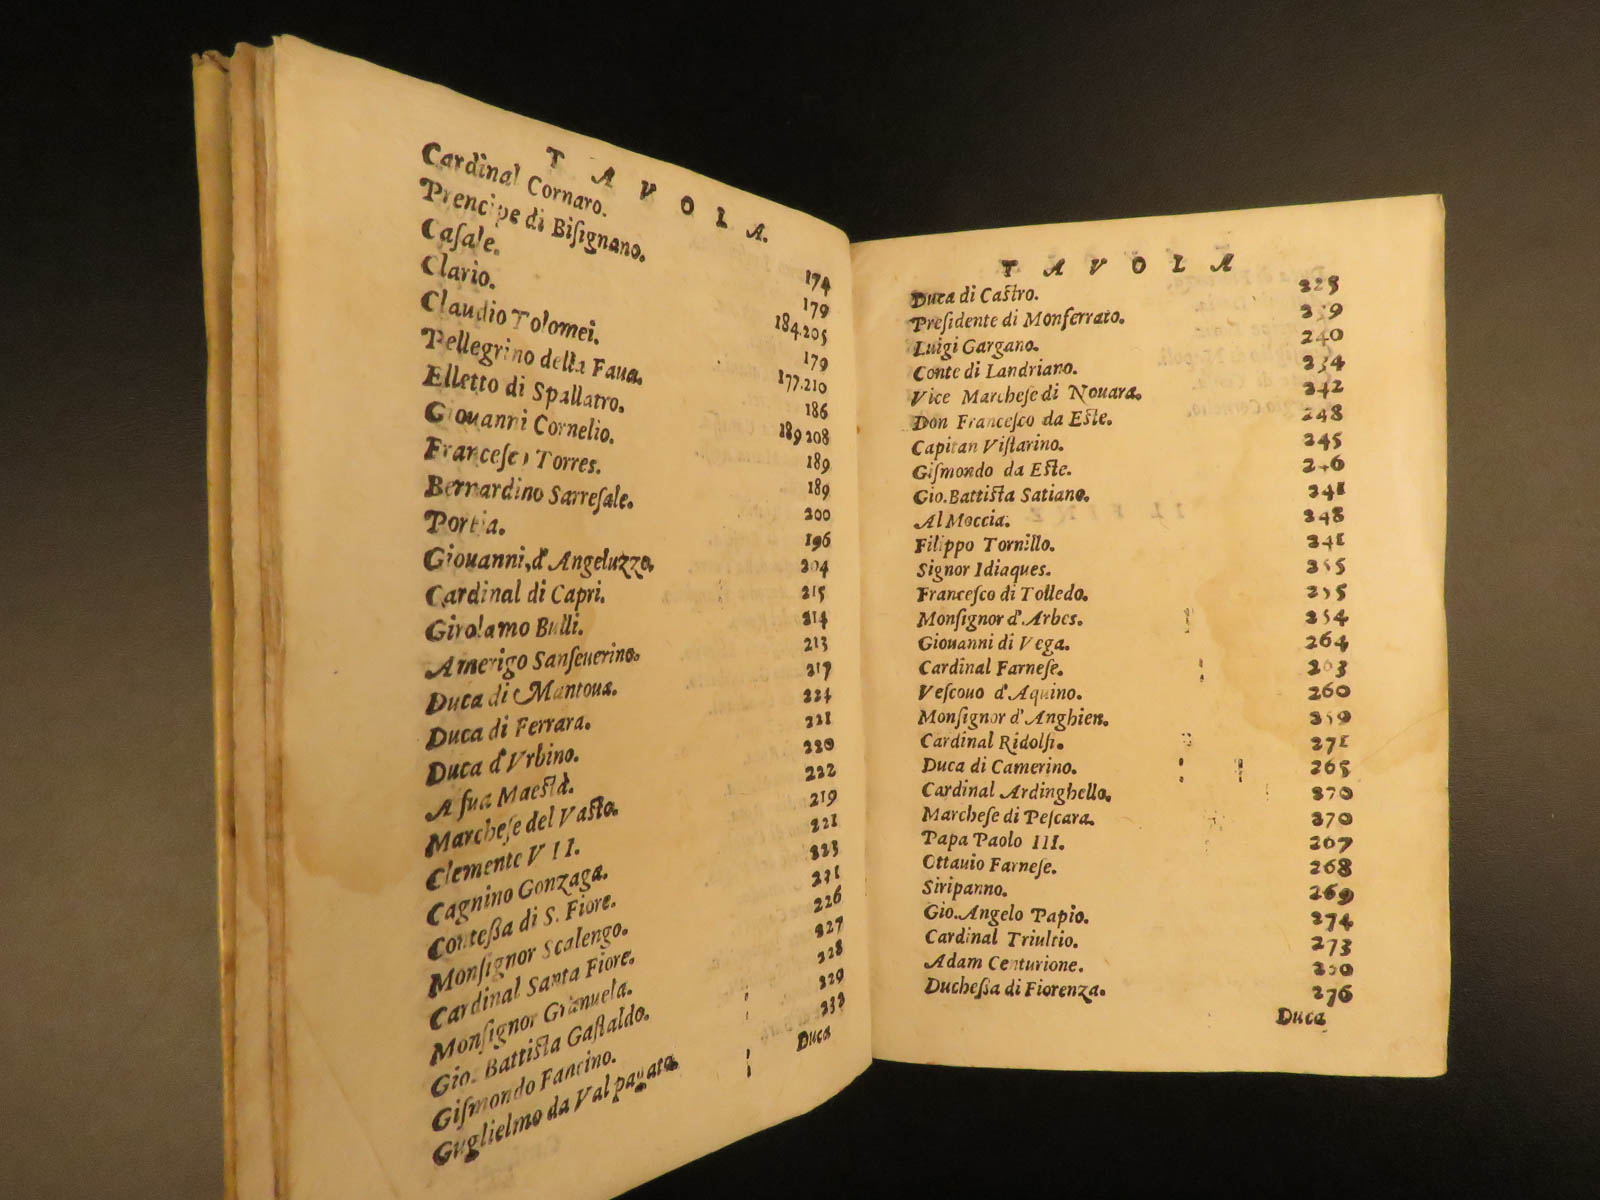 TAVOLA.
Cardinal Cornaro. 174
Prencipe di Biſignano. 179
Caſale. 184.205
Clario. 179
Claudio Tolomei. 177.210
Pellegrino della Faua. 186
Elletto di Spallatro. 189 208
Giouanni Cornelio. 189
Franceſco Torres. 189
Bernardino Sarreſale. 200
Portia. 196
Giouanni, d'Angeluzzo. 204
Cardinal di Capri. 215
Girolamo Bulli. 214
Amerigo Sanſeuerino. 213
Duca di Mantoua. 217
Duca di Ferrara. 224
Duca d'Vrbino. 221
A ſua Maeſtà. 220
Marcheſe del Vaſto. 222
Clemente VII. 219
Cagnino Gonzaga. 221
Conteßa di S. Fiore. 223
Monſignor Scalengo. 221
Cardinal Santa Fiore. 226
Monſignor Granuela. 227
Gio. Battiſta Gaſtaldo. 228
Giſmondo Fancino. 229
Guglielmo da Valpagata. 232
Duca
TAVOLA
Duca di Caſtro. 225
Preſidente di Monferrato. 239
Luigi Gargano. 240
Conte di Landriano. 234
Vice Marcheſe di Nouara. 242
Don Franceſco da Eſte. 248
Capitan Viſtarino. 245
Giſmondo da Eſte. 246
Gio. Battiſta Satiano. 241
Al Moccia. 248
Filippo Tornillo. 241
Signor Idiaques. 255
Franceſco di Tolledo. 255
Monſignor d'Arbes. 254
Giouanni di Vega. 264
Cardinal Farneſe. 263
Veſcouo d'Aquino. 260
Monſignor d'Anghien. 259
Cardinal Ridolfi. 271
Duca di Camerino. 265
Cardinal Ardinghello. 270
Marcheſe di Peſcara. 270
Papa Paolo III. 267
Ottauio Farneſe. 268
Siripanno. 269
Gio. Angelo Papio. 274
Cardinal Triultio. 273
Adam Centurione. 250
Ducheßa di Fiorenza. 276
Duca